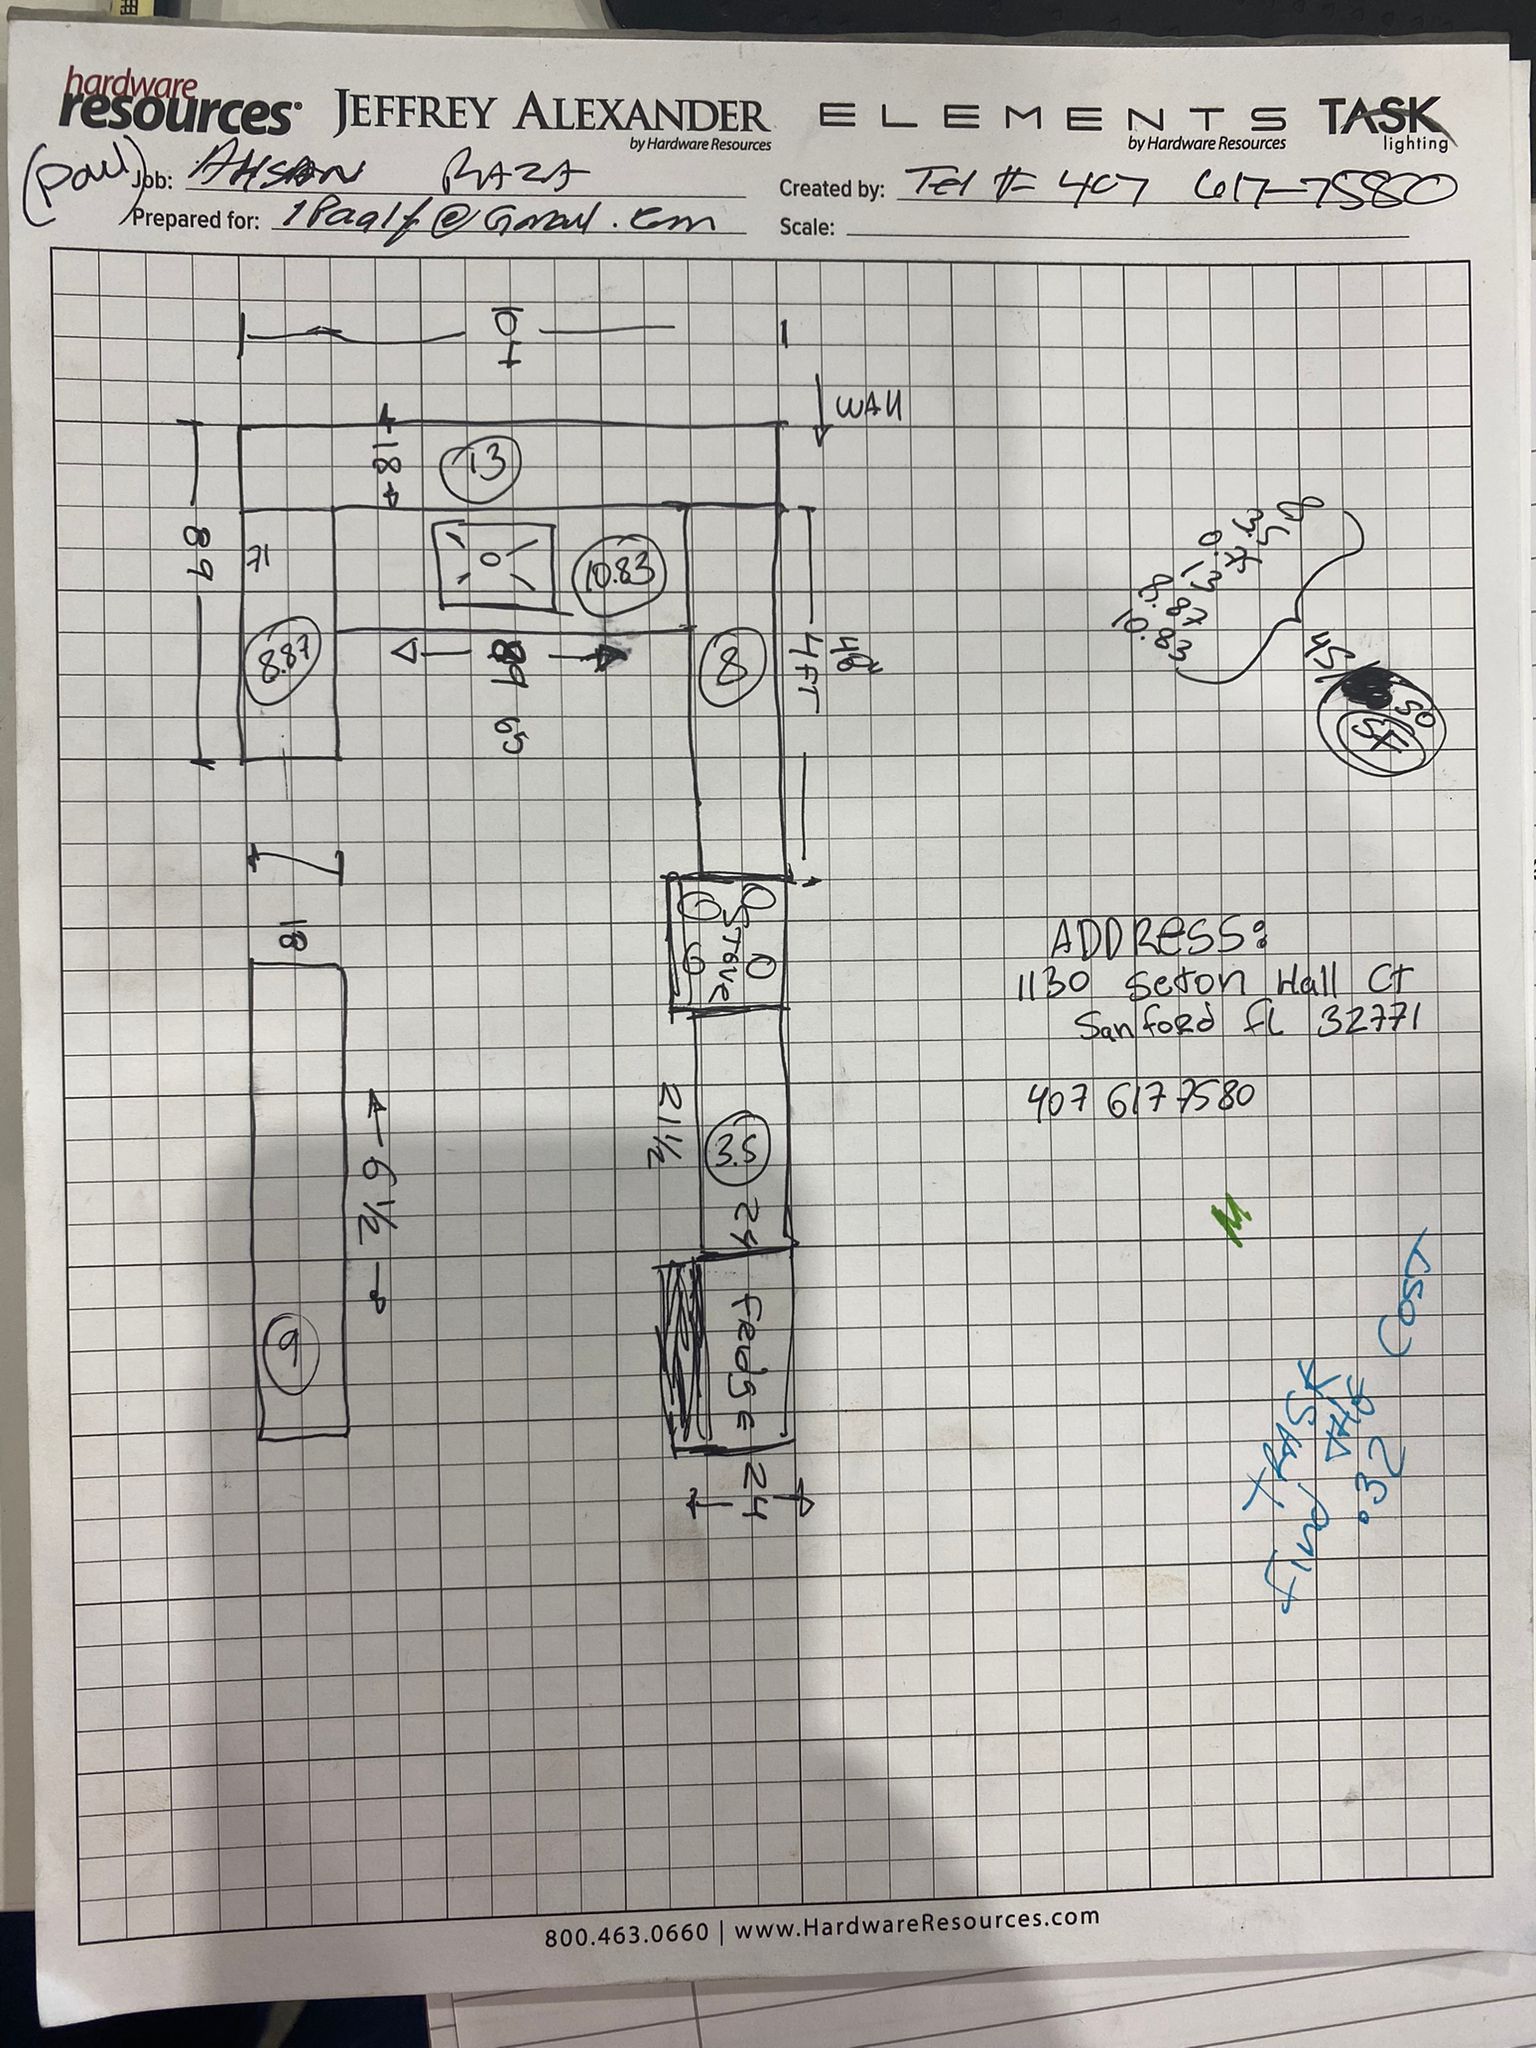 hardware resources® JEFFREY ALEXANDER by Hardware Resources ELEMENTS by Hardware Resources TASK lighting
(Paul) Job: AHSAN RAZA Created by: Tel # 407 617-7580
Prepared for: @Gmail.com Scale:
10
WALL
18
13
89
71
10.83
8.87
65
8
4FT
48"
8
3.5
13
8.87
10.83
45
50
54
18
Stove
ADDRESS:
1130 Seton Hall Ct
Sanford FL 32771
407 617 7580
21 1/2
3.5
24
6 1/2
9
FRidgE
24
M
TRASK
Find THE
.32 COST
800.463.0660 | www.HardwareResources.com